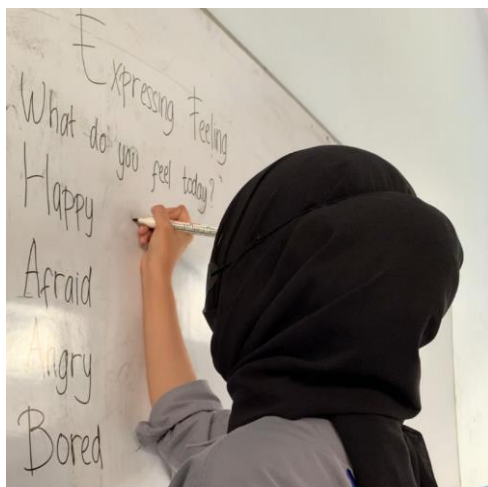 Expressing Feeling
What do you feel today?
Happy
Afraid
Angry
Bored